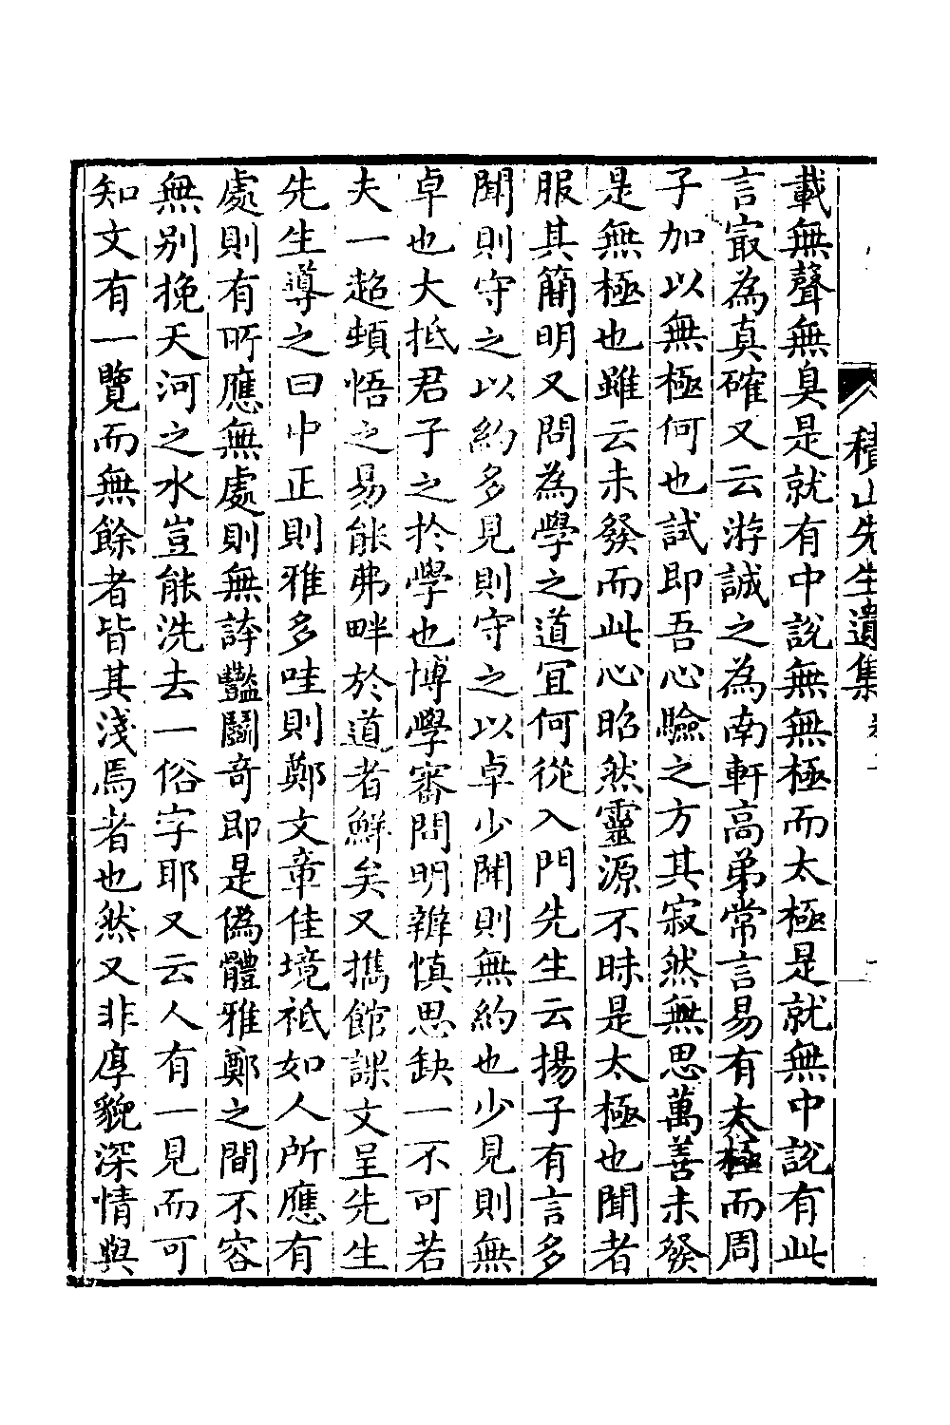 積山先生遺集
載無聲無臭是就有中說無無極而太極是就無中說有此
言㝡為真確又云游誠之為南軒高弟常言易有太極而周
子加以無極何也試即吾心驗之方其寂然無思萬善未發
是無極也雖云未發而此心昭然靈源不昧是太極也聞者
服其簡明又問為學之道冝何從入門先生云揚子有言多
聞則守之以約多見則守之以卓少聞則無約也少見則無
卓也大抵君子之於學也博學審問明辨慎思缺一不可若
夫一超頓悟之易能弗畔於道者鮮矣又攜館課文呈先生
先生導之曰中正則雅多哇則鄭文章佳境祇如人所應有
處則有所應無處則無誇豔鬭奇即是偽體雅鄭之間不容
無别挽天河之水豈能洗去一俗字耶又云人有一見而可
知文有一覽而無餘者皆其淺焉者也然又非厚貌深情與